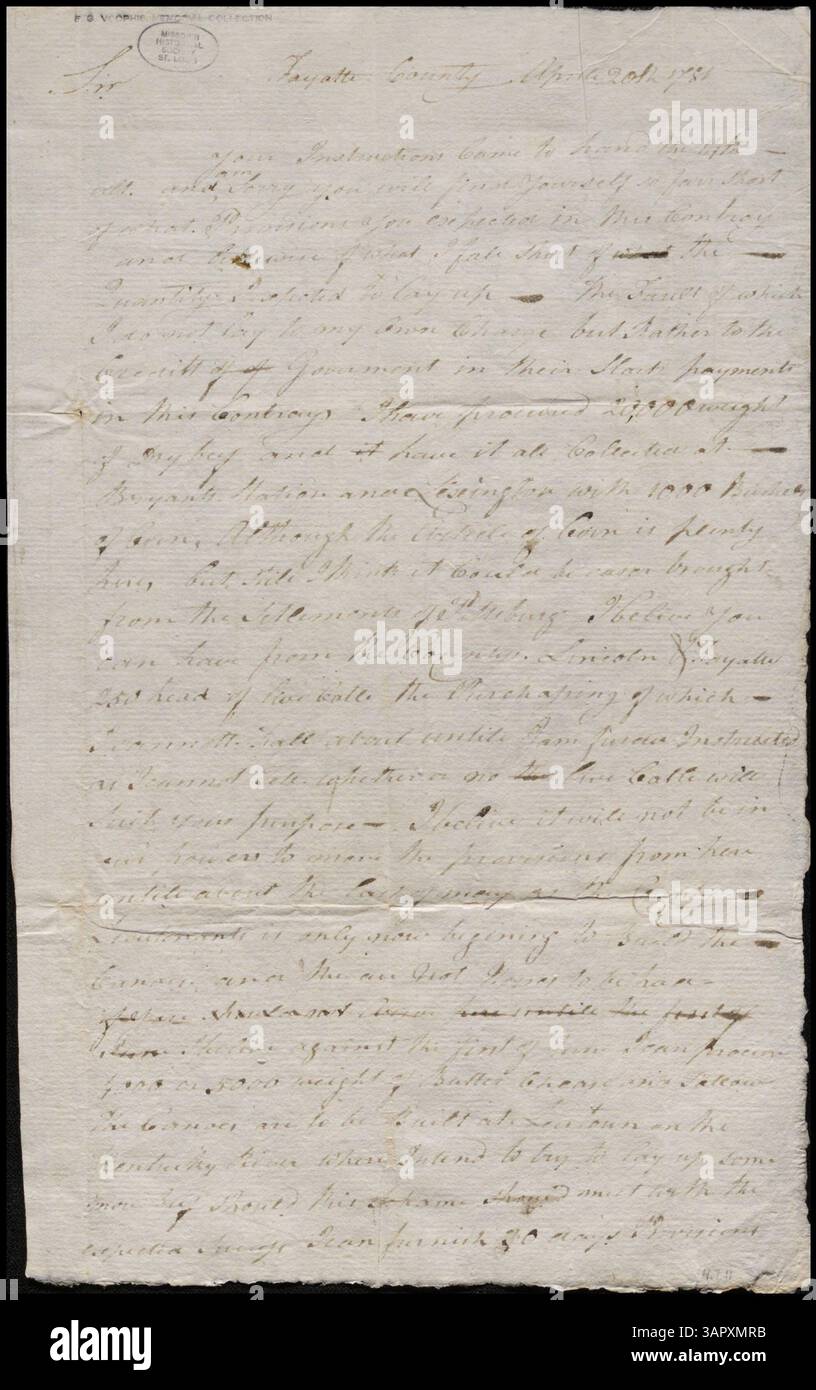 E. G. VOORHIS MEMORIAL COLLECTION
MISSOURI
HISTORICAL
SOCIETY
ST. LOUIS
Sir Fayatte County Aprile 20th 1781
your Instructions Came to hand the
ult. and I am Sorry you will find yourself so far Short
of what Provisions you expected in this Contray
and of what I fall Short of what the
Quantity I expected to lay up — the Fault of which
I do not lay to my Own Charge but Rather to the
Creditt of of Goverment in their Slack payments
in this Contray. I have procured 20,000 weight
of Dry beef and it have it all Collected at
Bryants Station and Lexington with 1000 Bushels
of Corn, Although the Article of Corn is plenty
here, but still I think it Could be easer brought
from the Setlements of Pittsburg I belive you
can have from Lincoln & Fayatte
250 head of live Catle the Purchasing of which —
I cannott all about untile I am furder Instructed
as I cannot tell whether or no the live Catle will
Suit your purpose — I belive it will not be in
our powers to move the provisions from here
untile about the last of may as the County
Lieutenants is only now begining to Build the
Canoes and the are Not to be had
before untile the first of
June against the first of June I can procure
4000 or 5000 weight of Butter Chease and Tallow
the Canoes are to be Built at Leestown on the
Kentucky River where I intend to try to lay up some
more beef Should this scheame should meet with the
expected I can furnish 20 days Provisions
4.7.11
alamy
Image ID: 3APXMRB
www.alamy.com